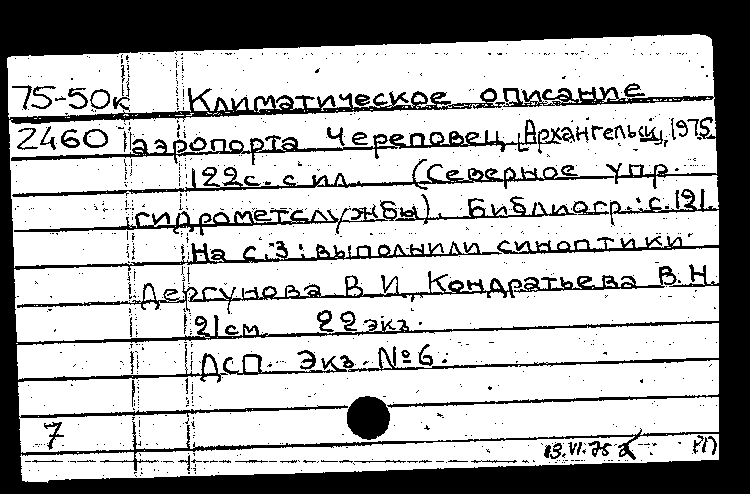 75-50к Климатическое описание
2460 аэропорта Череповец, [Архангельск], 1975.
122с. с ил. (Северное упр.
гидрометслужбы). Библиогр.: с.121.
На с.3: выполнили синоптики
Дергунова В.И., Кондратьева В.Н.
21см 22экз.
ДСП. Экз. №6.
7
13.VI.75 РП